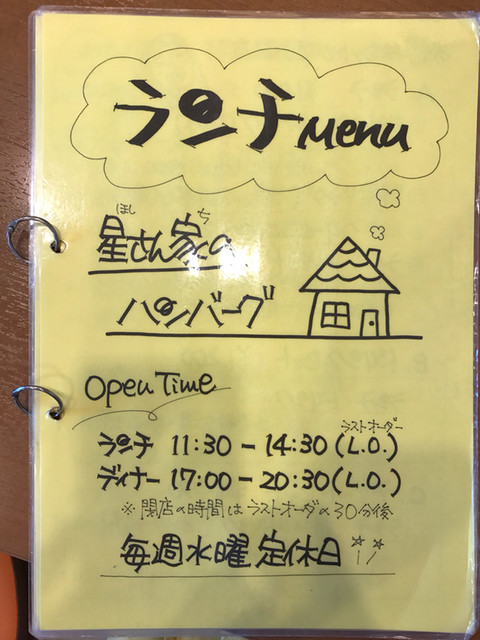 ランチ Menu
ほし ち
星さん家の
ハンバーグ
Open Time
ラストオーダー
ランチ 11:30 - 14:30 (L.O.)
ディナー 17:00 - 20:30 (L.O.)
※ 閉店の時間はラストオーダの30分後
毎週水曜定休日